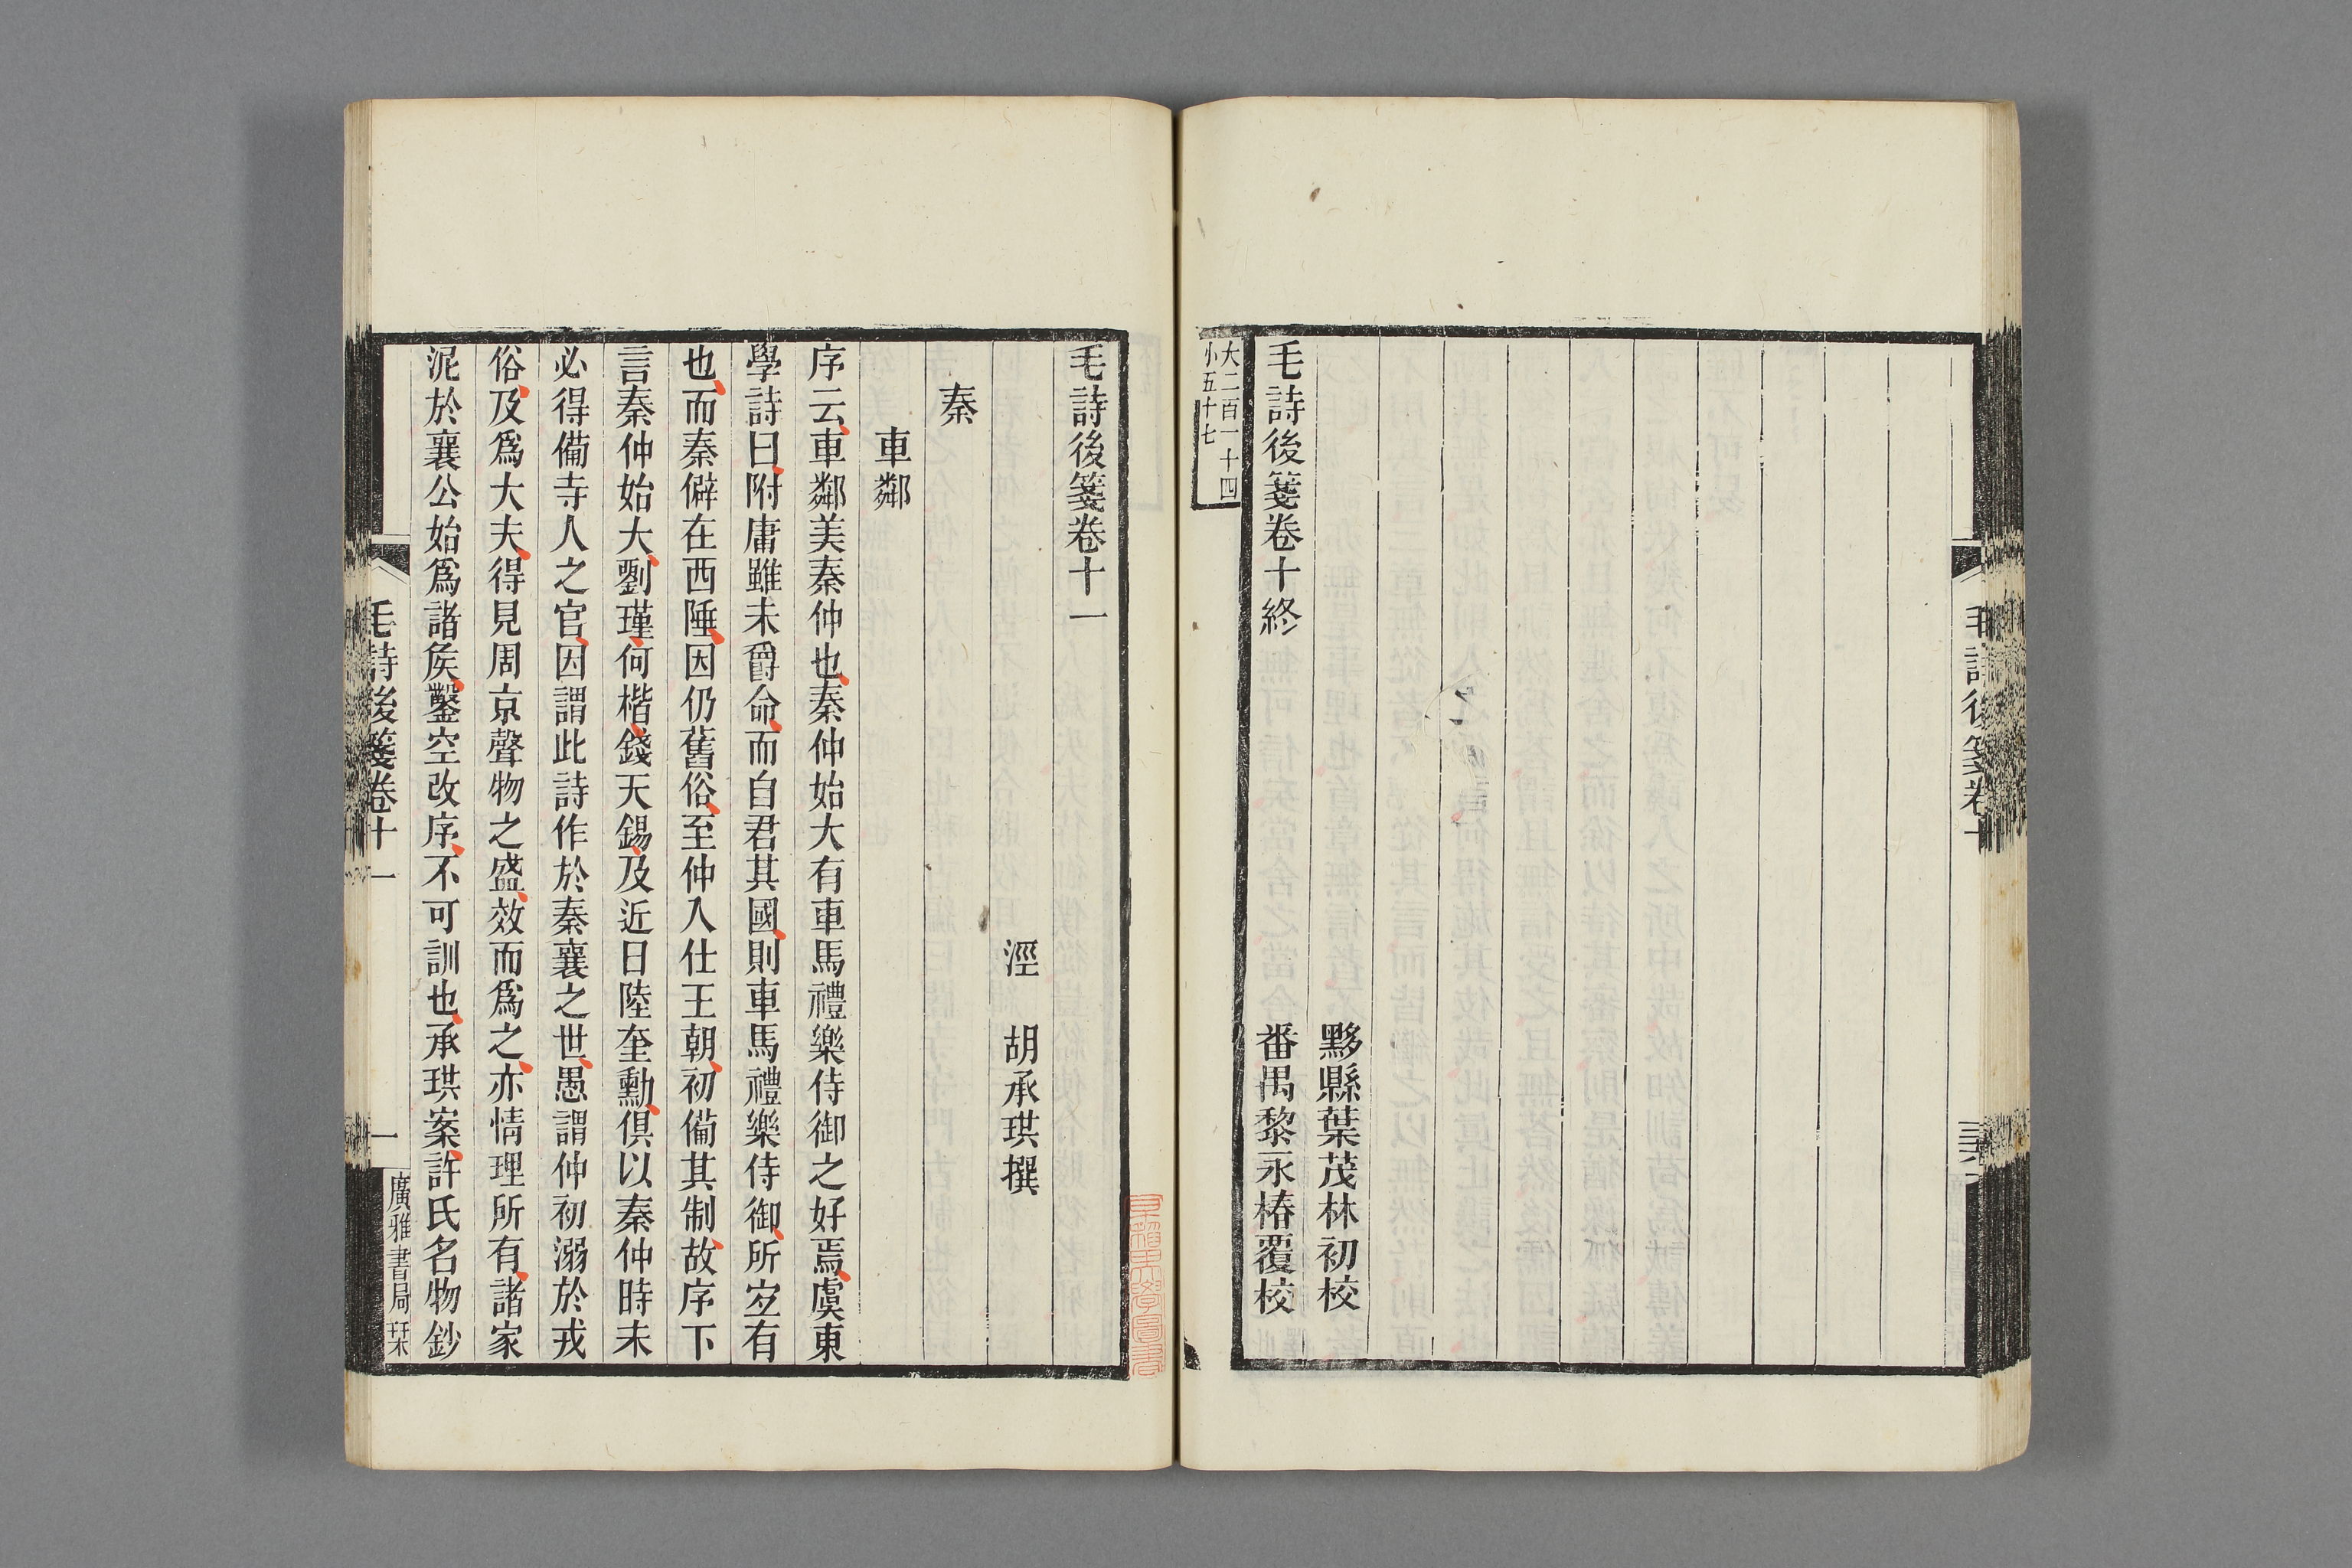 毛詩後箋卷十
三十六
黟縣葉茂林初校
番禺黎永椿覆校
毛詩後箋卷十終
大二百一十四
小五十七
毛詩後箋卷十一
涇 胡承珙撰
秦
車鄰
序云車鄰美秦仲也秦仲始大有車馬禮樂侍御之好焉虞東
學詩曰附庸雖未爵命而自君其國則車馬禮樂侍御所宐有
也而秦僻在西陲因仍舊俗至仲入仕王朝初備其制故序下
言秦仲始大劉瑾何楷錢天錫及近日陸奎勳俱以秦仲時未
必得備寺人之官因謂此詩作於秦襄之世愚謂仲初溺於戎
俗及爲大夫得見周京聲物之盛效而爲之亦情理所有諸家
泥於襄公始爲諸矦鑿空改序不可訓也承珙案許氏名物鈔
毛詩後箋卷十一
一
廣雅書局栞